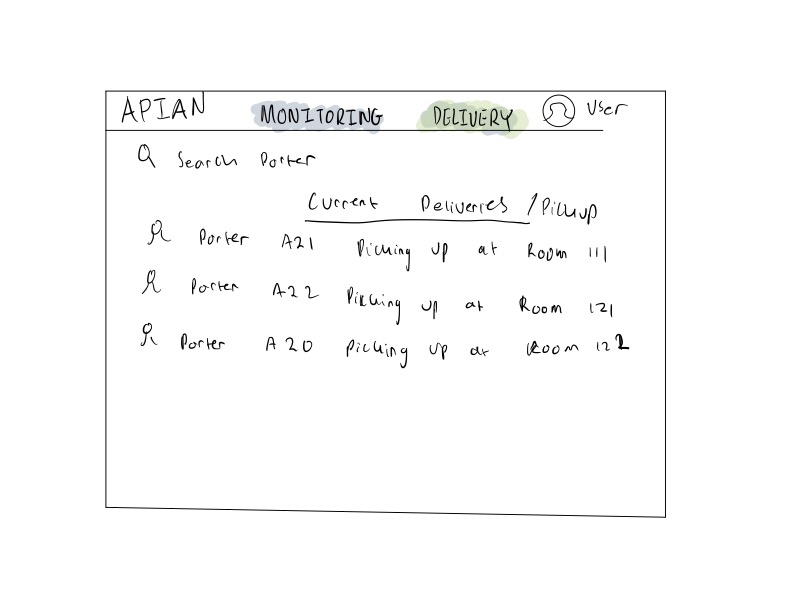 APIAN MONITORING DELIVERY User
Search Porter
Current Deliveries / Pickup
Porter A21 Picking up at Room 111
Porter A22 Picking up at Room 121
Porter A20 Picking up at Room 122